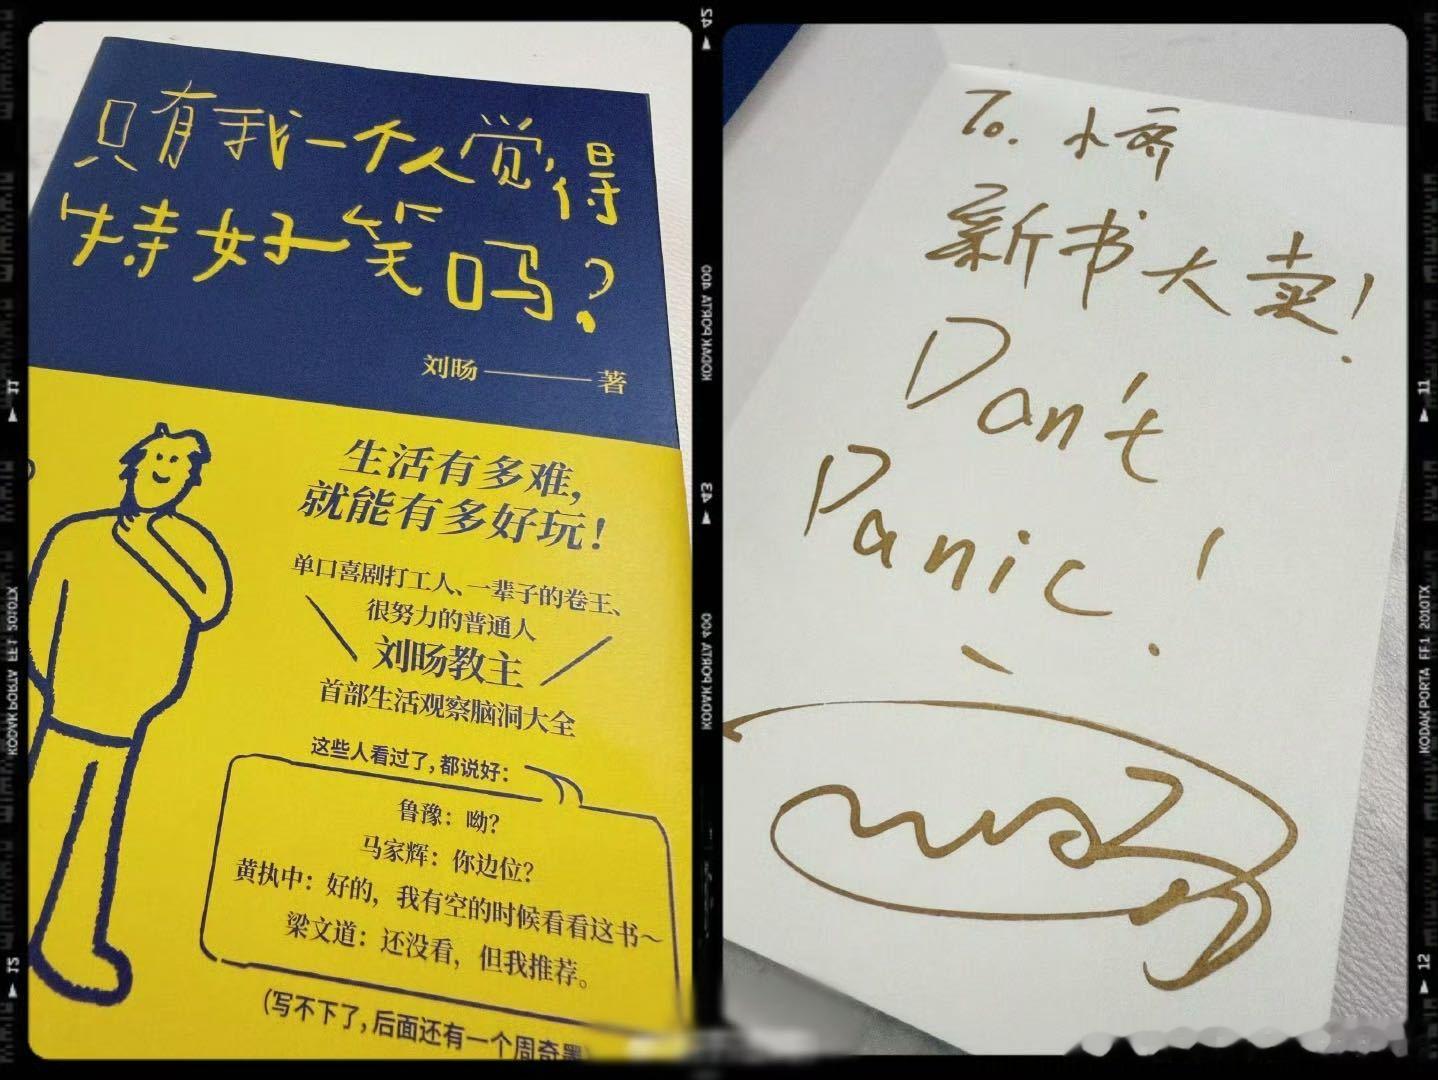 只有我一个人觉得
特好笑吗？
刘旸————著
生活有多难，
就能有多好玩！
单口喜剧打工人、一辈子的卷王、
很努力的普通人
刘旸教主
首部生活观察脑洞大全
这些人看过了，都说好：
鲁豫：呦？
马家辉：你边位？
黄执中：好的，我有空的时候看看这书～
梁文道：还没看，但我推荐。
（写不下了，后面还有一个周奇墨）
To. 小齐
新书大卖！
Don't
Panic！
42
KODAK PORTA 400
43
KODAK PORTA 400
11
KODAK PORTA EF1 2010TX
12
11
KODAK PORTA EF1 2010TX
12